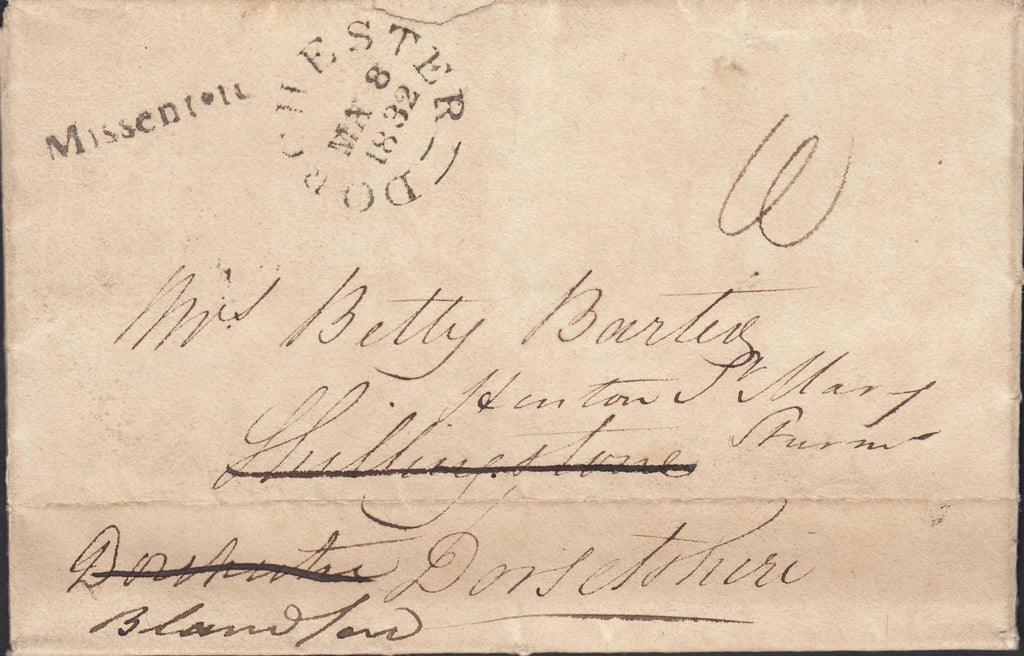 DORCHESTER
MY 8
1832
Missent to
Mrs Betty Barter
Hinton St Mary
Sturm
Shillingstone
Dorchester Dorsetshire
Blandford